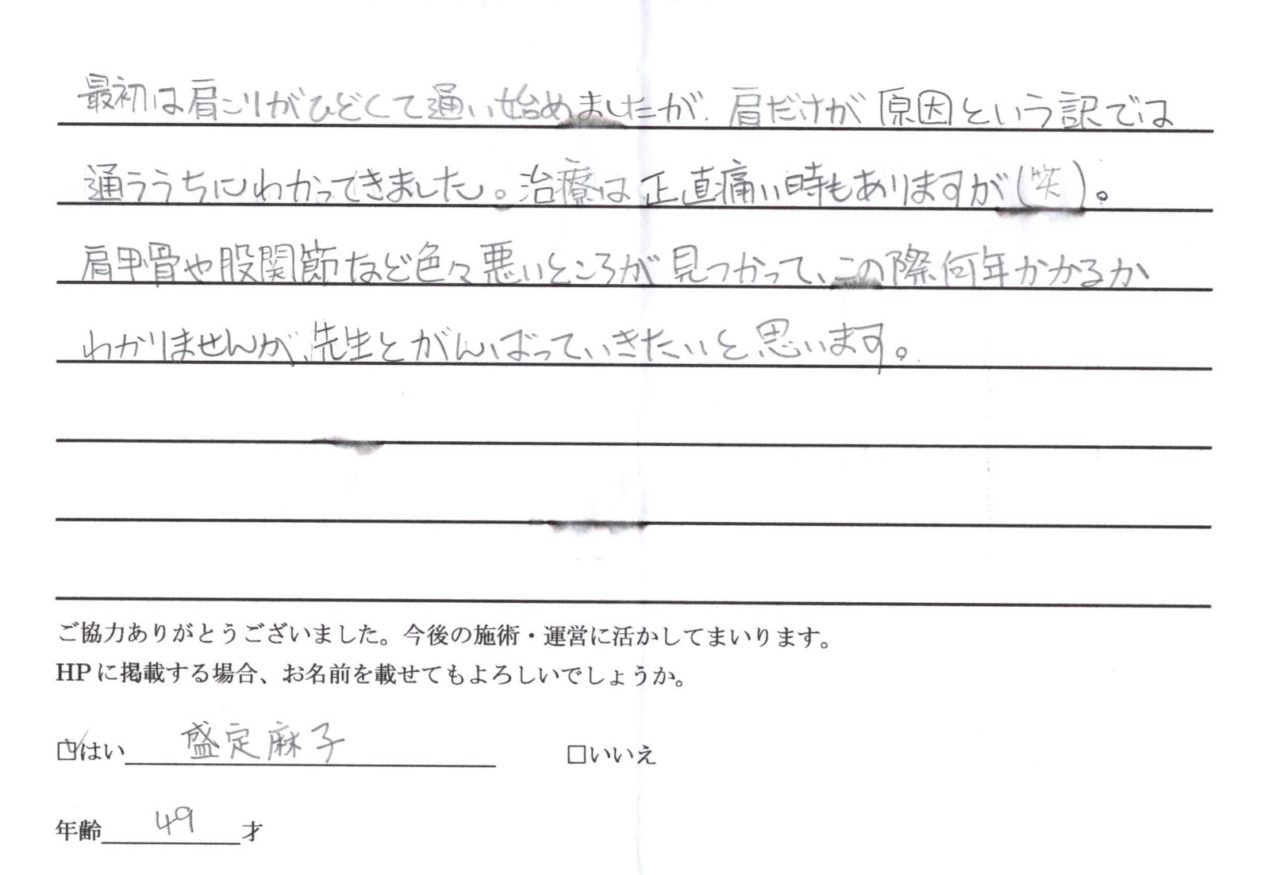 最初は肩こりがひどくて通い始めましたが、肩だけが原因という訳では
通ううちにわかってきました。治療は正直痛い時もありますが(笑)。
肩甲骨や股関節など色々悪いところが見つかって、この際何年かかるか
わかりませんが、先生とがんばっていきたいと思います。
ご協力ありがとうございました。今後の施術・運営に活かしてまいります。
HPに掲載する場合、お名前を載せてもよろしいでしょうか。
☑はい 盛定麻子 □いいえ
年齢 49 才